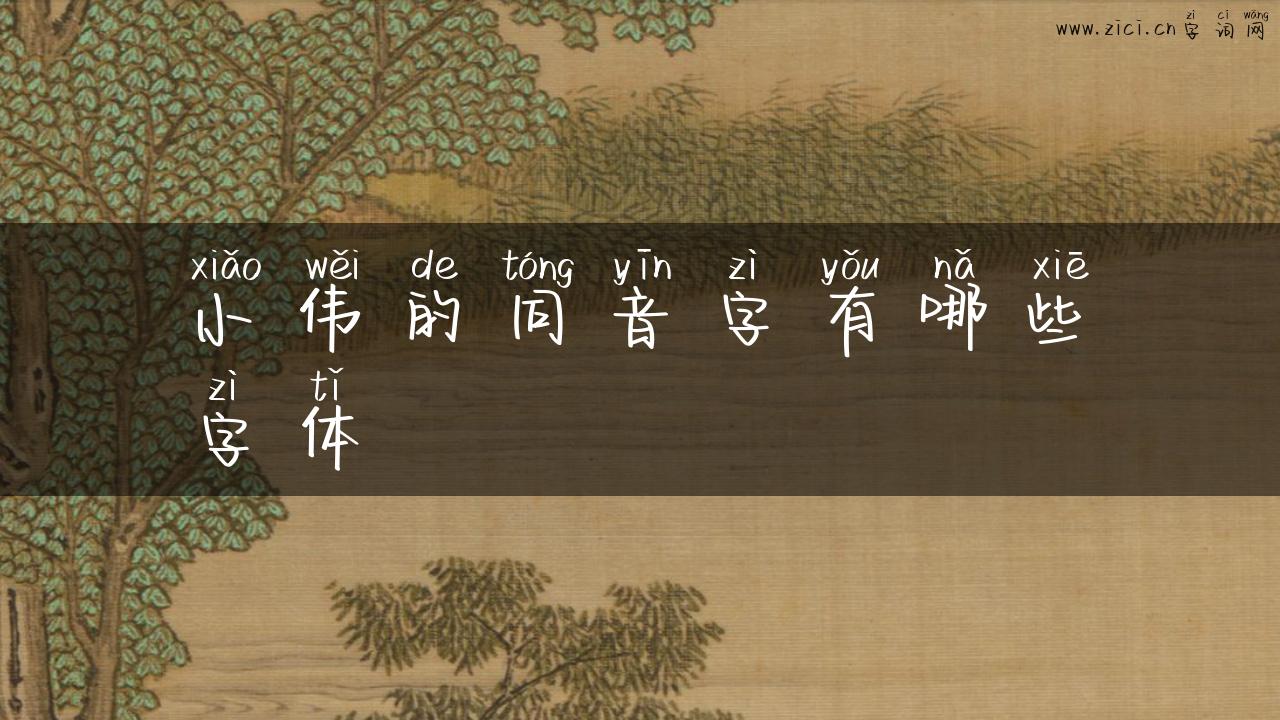 zì cí wǎng
www.zici.cn字词网
xiǎo wěi de tóng yīn zì yǒu nǎ xiē
小伟的同音字有哪些
zì tǐ
字体